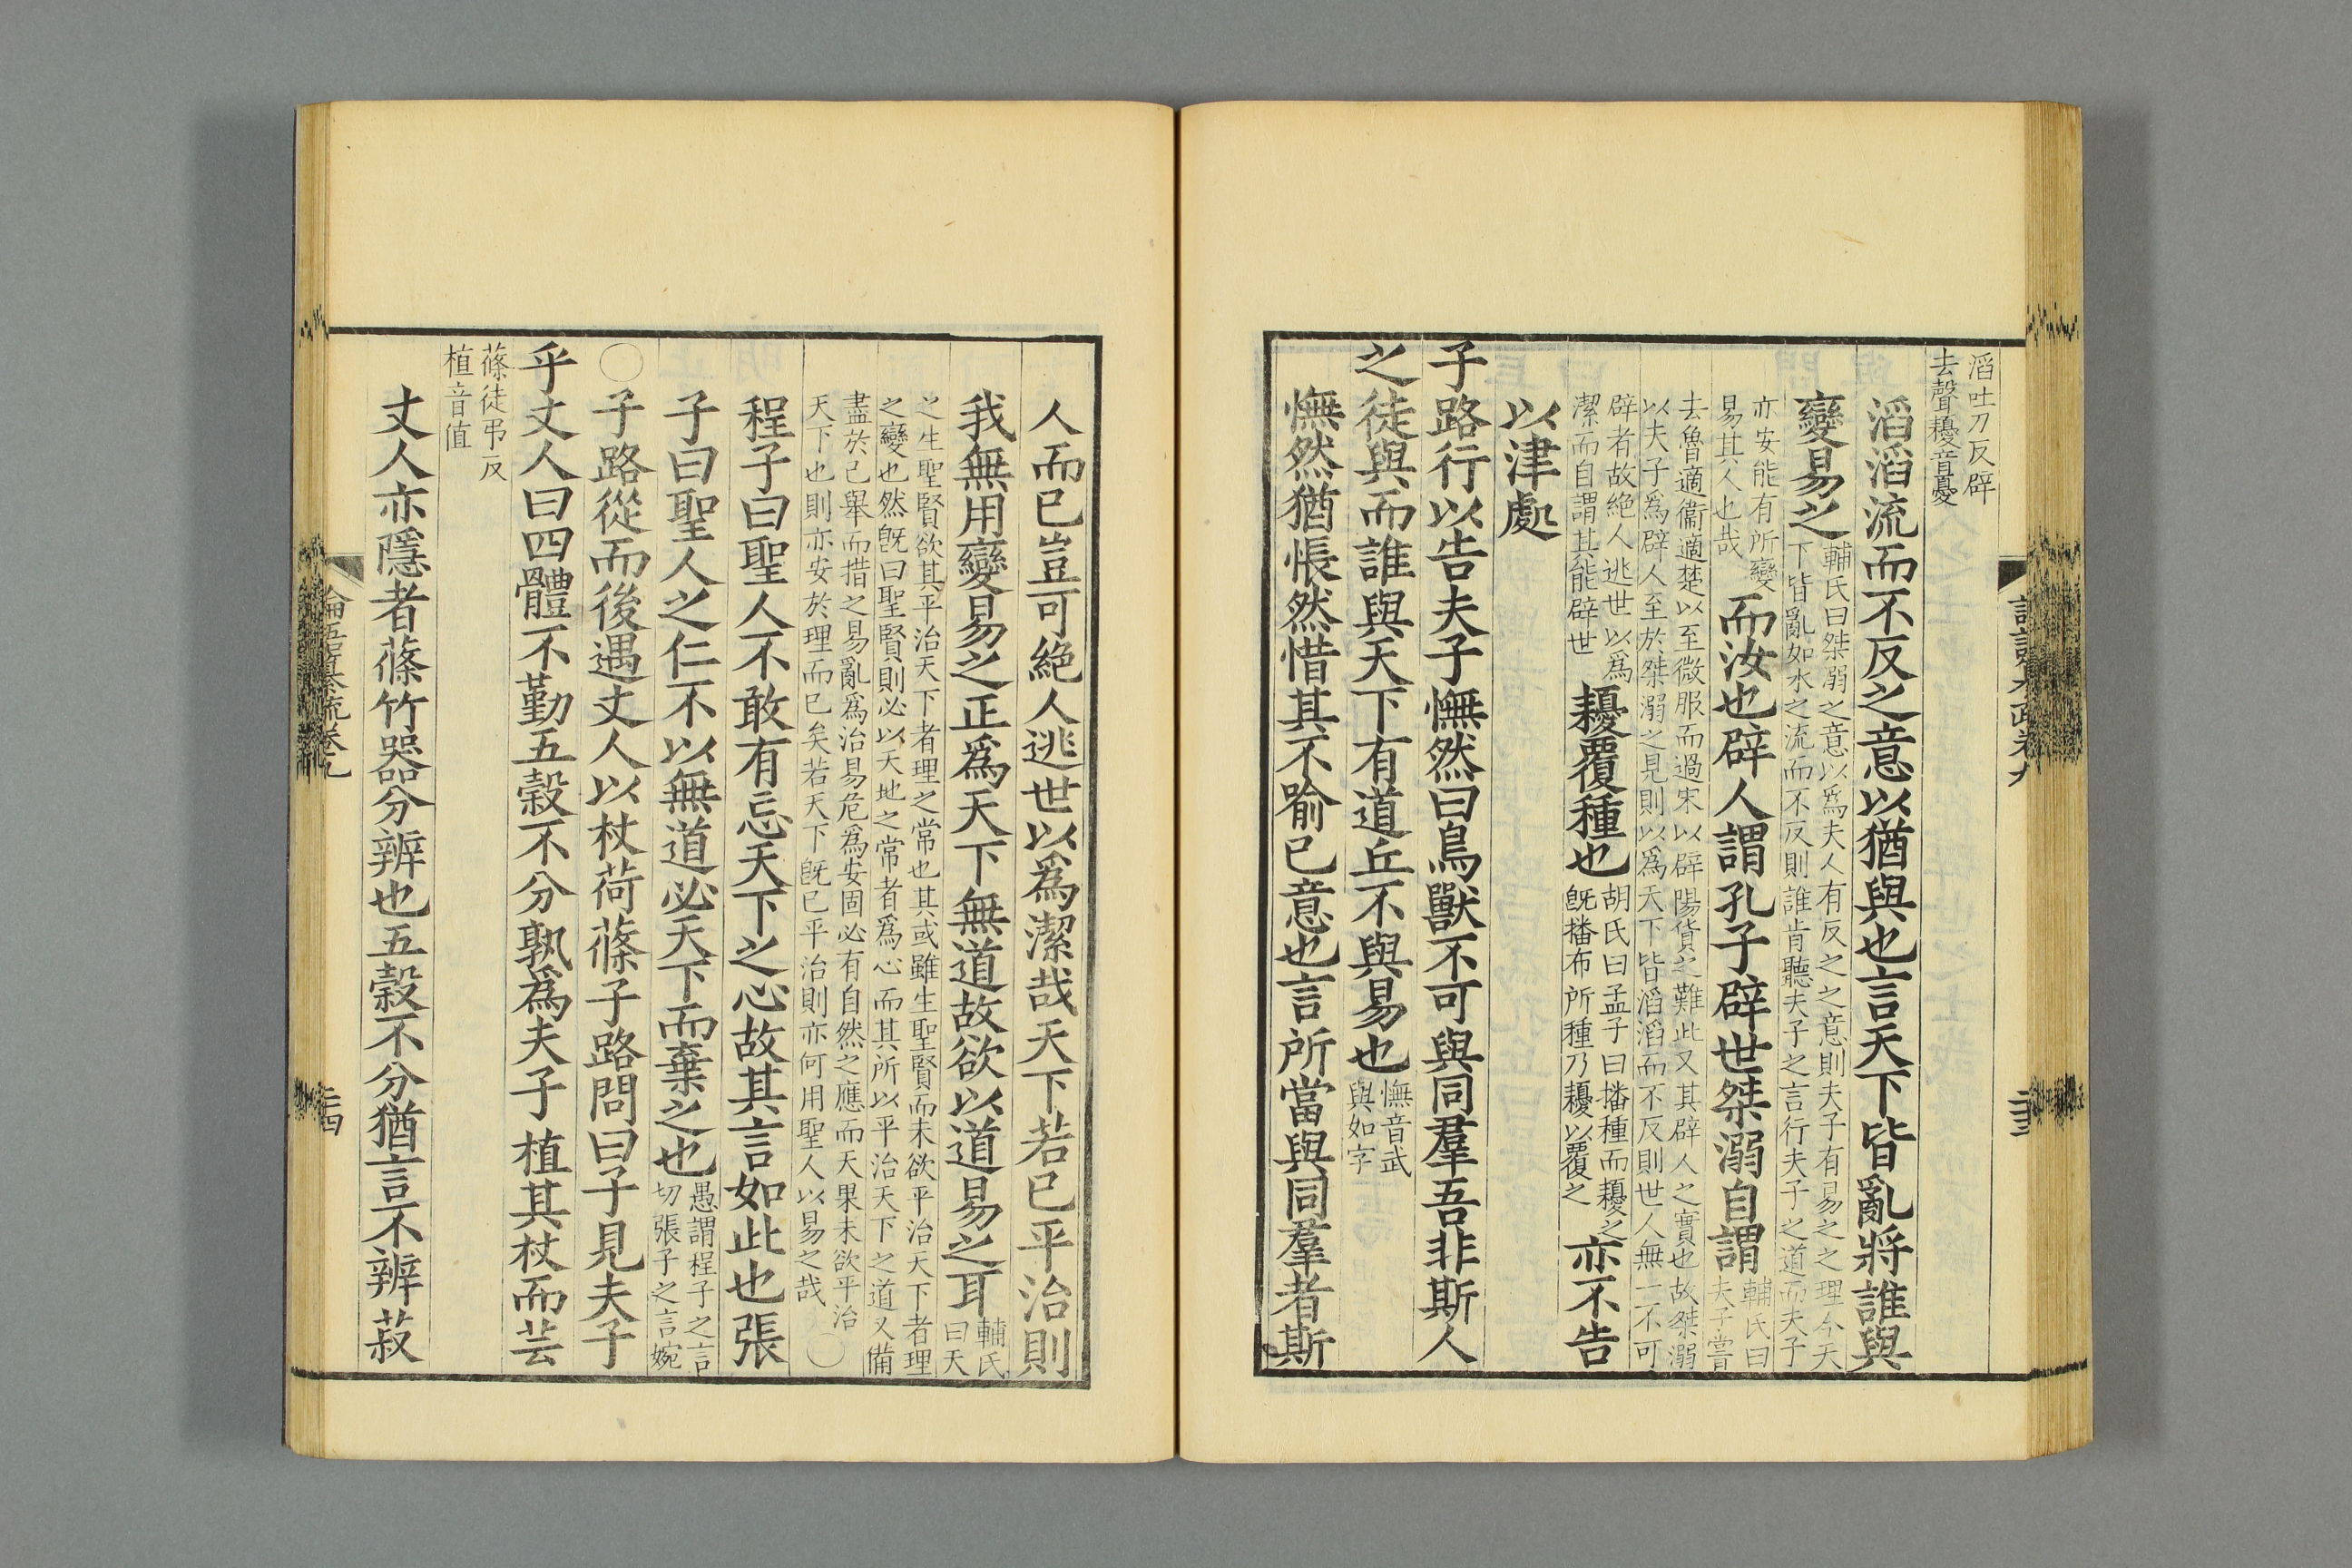 滔吐刀反辟
去聲耰音憂
滔滔流而不反之意以猶與也言天下皆亂將誰與
變易之輔氏曰桀溺之意以爲夫人有反之之意則夫子有易之之理今天
下皆亂如水之流而不反則誰肯聽夫子之言行夫子之道而夫子
亦安能有所變
易其人也哉而汝也辟人謂孔子辟世桀溺自謂輔氏曰
夫子嘗
去魯適衞適楚以至微服而過宋以辟陽貨之難此又其辟人之實也故桀溺
以夫子爲辟人至於桀溺之見則以爲天下皆滔滔而不反則世人無一不可
辟者故絶人逃世以爲
潔而自謂其能辟世耰覆種也胡氏曰孟子曰播種而耰之
旣播布所種乃耰以覆之亦不告
以津處
子路行以告夫子憮然曰鳥獸不可與同羣吾非斯人
之徒與而誰與天下有道丘不與易也憮音武
與如字
憮然猶悵然惜其不喻已意也言所當與同羣者斯
人而已豈可絶人逃世以爲潔哉天下若已平治則
我無用變易之正爲天下無道故欲以道易之耳輔氏
曰天
之生聖賢欲其平治天下者理之常也其或雖生聖賢而未欲平治天下者理
之變也然旣曰聖賢則必以天地之常者爲心而其所以平治天下之道又備
盡於己舉而措之易亂爲治易危爲安固必有自然之應而天果未欲平治
天下也則亦安於理而已矣若天下旣已平治則亦何用聖人以易之哉〇
程子曰聖人不敢有忘天下之心故其言如此也張
子曰聖人之仁不以無道必天下而棄之也愚謂程子之言
切張子之言婉
〇子路從而後遇丈人以杖荷蓧子路問曰子見夫子
乎丈人曰四體不勤五穀不分孰爲夫子植其杖而芸
蓧徒弔反
植音值
丈人亦隱者蓧竹器分辨也五穀不分猶言不辨菽